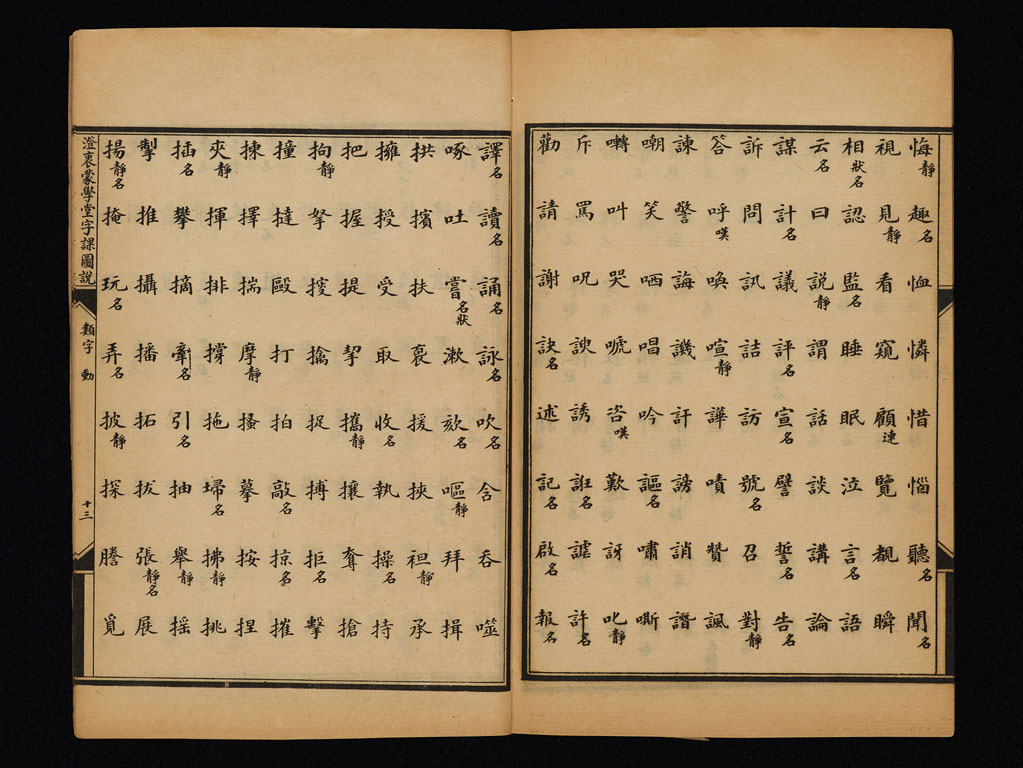 悔靜趣名恤憐惜惱聽名聞名
視見靜看窺顧連覽覩瞬
相狀名認監名睡眠泣言名語
云名曰説靜謂話談講論
謀計名議評名宣名譬誓名告名
訴問訊詰訪號名召對靜
答呼嘆喚喧靜譁嘖贊諷
諫警誨譏訐謗誚譖
嘲笑哂唱吟謳名嘯嘶
囀叫哭唬咨嘆歎訝叱靜
斥罵咒諛誘誑名謔許名
勸請謝訣名述記名啟名報名
譯名讀名誦名詠名吹名含吞噬
啄吐嘗名狀漱欬名嘔靜拜揖
拱擯扶裒援挾袒靜承
擁授受取收名執操名持
把握提挈攜靜攘奪搶
拘靜拏搜擒捉搏拒名擊
撞撻毆打拍敲名掠名摧
揀擇揣摩靜搔摹按捏
夾靜揮排撐拖埽名拂靜挑
插名攀摘牽名引名抽舉靜搖
掣推攝播拓拔張靜名展
揚靜名掩玩名弄名披靜探謄覓
澄衷蒙學堂字課圖說
類字 動
十三